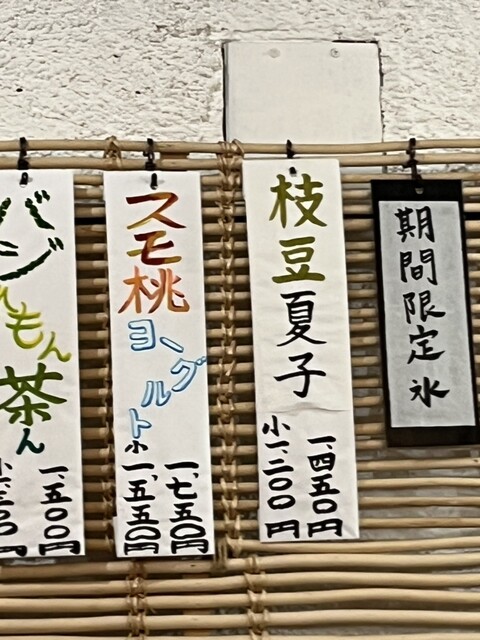 期間限定氷
枝豆夏子
一、四五〇円
小一、二〇〇円
スモ桃
ヨーグルト
一、七五〇円
小一、五五〇円
バジ
れもん
茶ん
一、五〇〇円